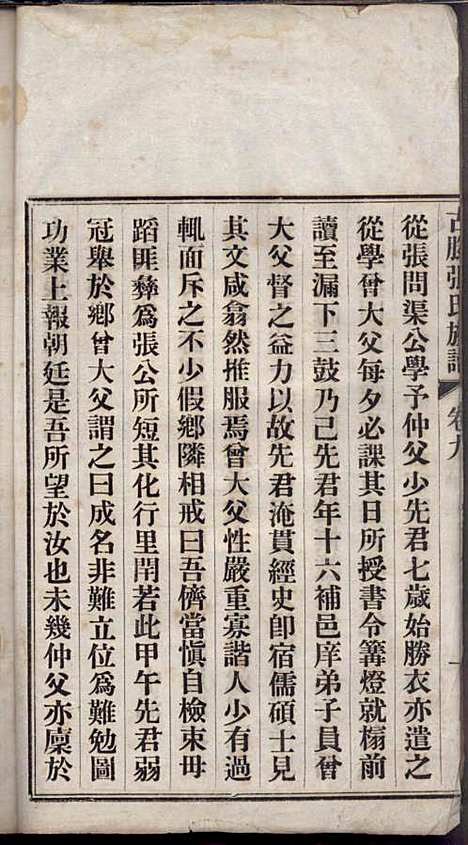 古滕張氏族譜 卷九 一
從張問渠公學予仲父少先君七歲始勝衣亦遣之
從學曾大父每夕必課其日所授書令篝燈就榻前
讀至漏下三鼓乃已先君年十六補邑庠弟子員曾
大父督之益力以故先君淹貫經史卽宿儒碩士見
其文咸翕然推服焉曾大父性嚴重寡諧人少有過
輒面斥之不少假鄉隣相戒曰吾儕當愼自檢束毋
蹈匪彝爲張公所短其化行里閈若此甲午先君弱
冠舉於鄉曾大父謂之曰成名非難立位爲難勉圖
功業上報朝廷是吾所望於汝也未幾仲父亦廩於